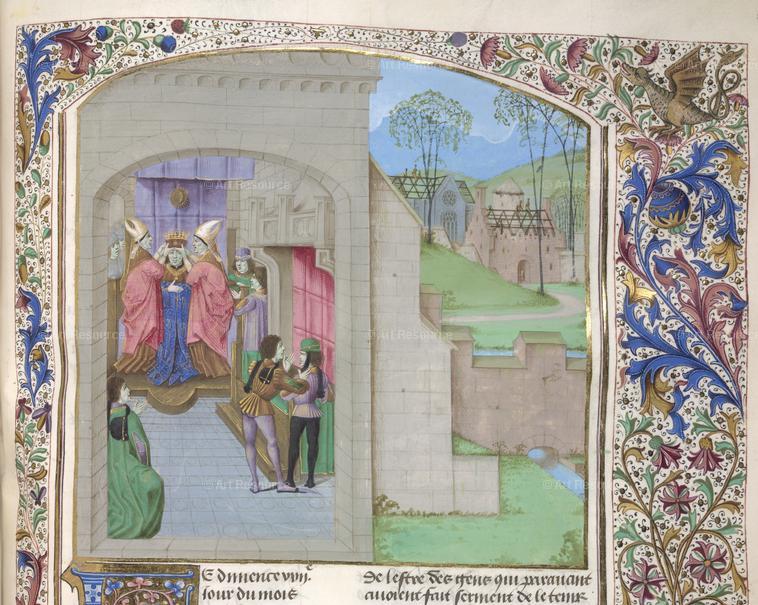 E dimence
Jour du mois
De lestre des gens qui parauant
auoient fait serment de le tenir
© Art Resource
© Art Resource
© Art Resource
© Art Resource
© Art Resource
© Art Resource